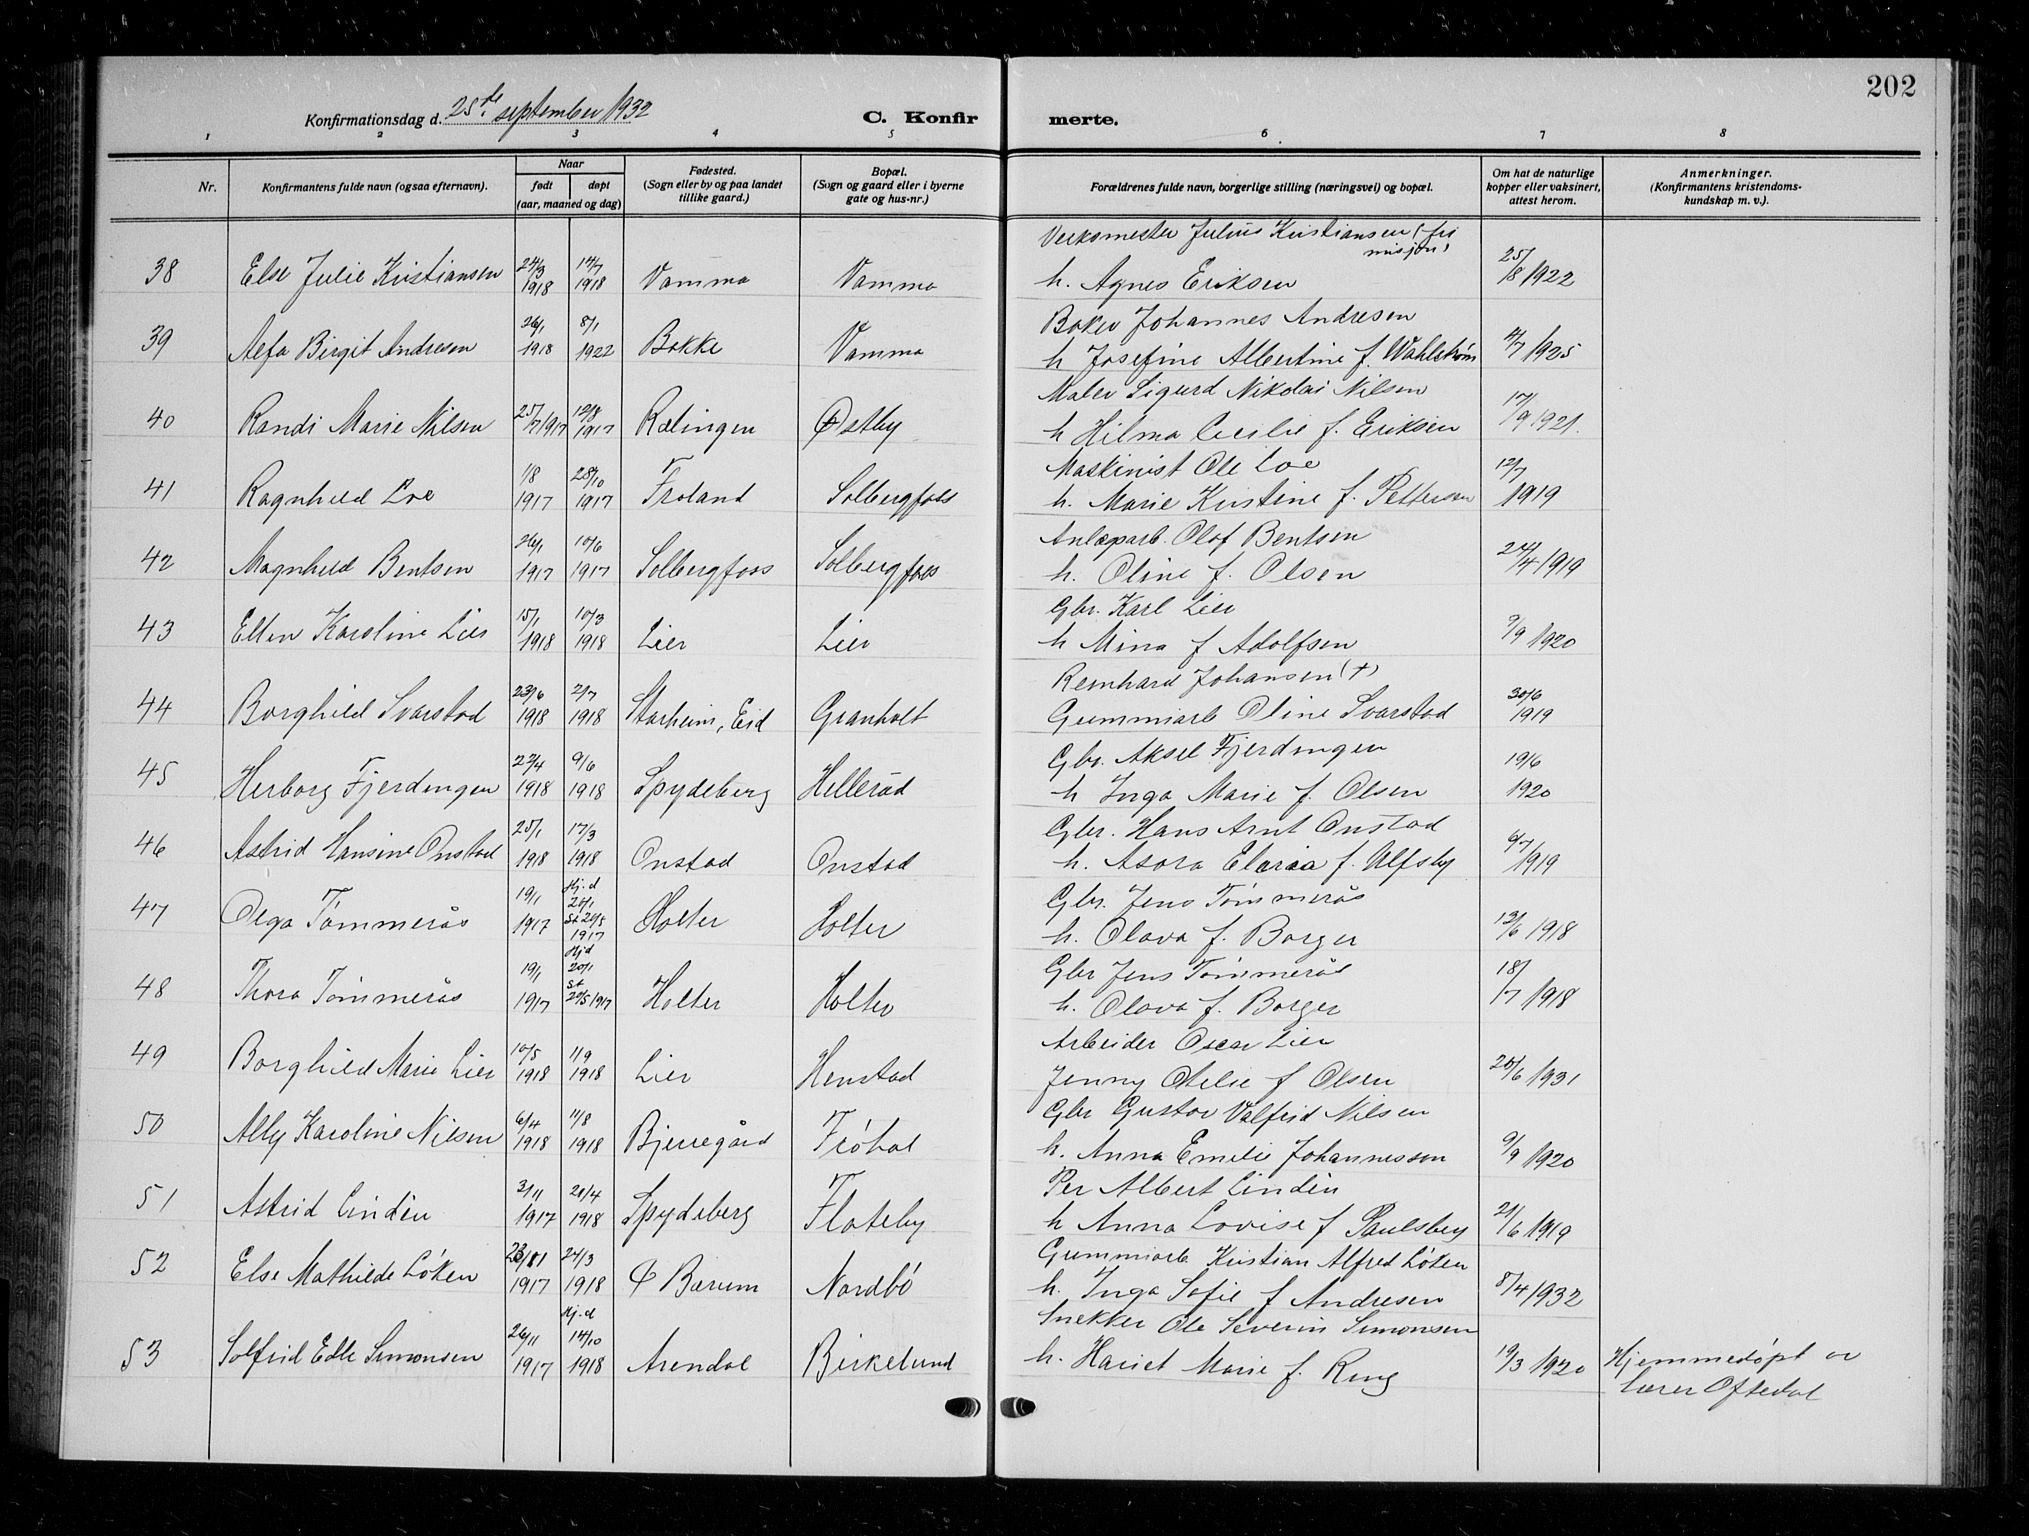 202
Konfirmationsdag d. 25de september 1932
C. Konfirmerte.
1 2 3 4 5 6 7 8
Nr.
Konfirmantens fulde navn (ogsaa efternavn).
Naar
født døpt
(aar, maaned og dag)
Fødested.
(Sogn eller by og paa landet
tillike gaard.)
Bopæl.
(Sogn og gaard eller i byerne
gate og hus-nr.)
Forældrenes fulde navn, borgerlige stilling (næringsvei) og bopæl.
Om hat de naturlige
kopper eller vaksinert,
attest herom.
Anmerkninger.
(Konfirmantens kristendoms-
kundskap m. v.).
Verksmester Julius Kristiansen (fri
misjon)
38 Else Julie Kristiansen 24/3 1918 14/7 1918 Vamma Vamma h. Agnes Eriksen 25/8 1922
Baker Johannes Andresen
39 Alfa Birgit Andresen 26/1 1918 8/1 1922 Bakke Vamma h Josefine Albertine f. Wahlstrøm 4/7 1925
Maler Sigurd Nikolai Nilsen
40 Randi Marie Nilsen 25/7 1917 12/8 1917 Rælingen Østby h Hilma Cecilie f. Eriksen 17/9 1921.
Maskinist Ole Loe
41 Ragnhild Loe 1/8 1917 28/10 1917 Froland Solbergfoss h. Marie Kristine f. Pettersen 12/7 1919
Anlæparb. Olof Bentsen
42 Magnhild Bentsen 26/1 1917 10/6 1917 Solbergfoss Solbergfoss h. Oline f. Olsen 24/4 1919
Gbr. Karl Lier
43 Ellen Karoline Lier 15/1 1918 10/3 1918 Lier Lier h Mina f Adolfsen 9/9 1920
Reinhard Johansen (†)
44 Borghild Svarstad 23/6 1918 2/7 1918 Starheim, Eid Granholt Gummiarb Oline Svarstad 30/6 1919
Gbr. Aksel Fjerdingen
45 Herborg Fjerdingen 22/4 1918 9/6 1918 Spydeberg Hellerud h Inga Marie f. Olsen 19/6 1920
Gbr. Hans Arnt Onstad
46 Astrid Hansine Onstad 25/1 1918 17/3 1918 Onstad Onstad h. Asora Elvria f. Ulfsby 6/7 1919
Gbr. Jens Tømmerås
47 Olga Tømmerås 19/1 1917 Hj.d 20/1 St 20/5 1917 Holter Holter h. Olava f. Borger 12/6 1918
Gbr Jens Tømmerås
48 Thora Tømmerås 19/1 1917 Hjd 20/1 St 20/5 1917 Holter Holter h. Olava f. Borger 18/7 1918
Arbeider Oscar Lier
49 Borghild Marie Lier 10/5 1918 1/9 1918 Lier Henstad Jenny Otelie f Olsen 20/6 1931
Gbr Gustav Valfrid Nilsen
50 Ally Karoline Nilsen 6/4 1918 11/8 1918 Bjerregård Frøhol h. Anna Emilie Johannesson 9/9 1920
Per Albert Lindén
51 Astrid Lindén 3/11 1917 21/4 1918 Spydeberg Flateby h Anna Lovise f Paulsbey 21/6 1919
Gummiarb Kristian Alfred Løken
52 Else Mathilde Løken 23/11 1917 24/3 1918 Ø Bærum Nordbø h. Inga Sofie f Andresen 8/4 1932
Snekker Ole Severin Simonsen
53 Solfrid Edle Simonsen 26/11 1917 Hj.d 14/10 1918 Arendal Birkelund h. Hariet Marie f. Ring 19/3 1920 Hjemmedøpt av
lærer Oftedal